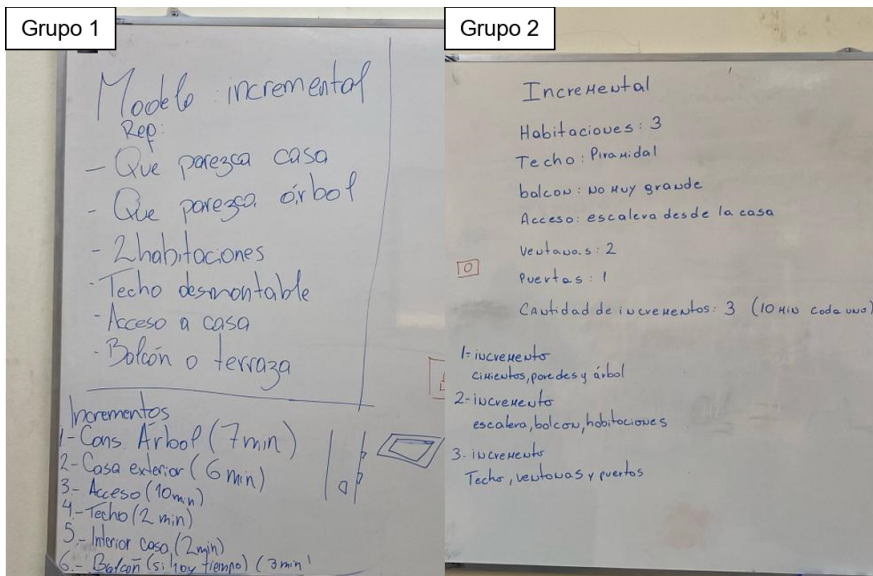 Grupo 1
Modelo incremental
Req:
- Que parezca casa
- Que parezca árbol
- 2 habitaciones
- Techo desmontable
- Acceso a casa
- Balcón o terraza
Incrementos
1- Cons. Árbol (7 min)
2- Casa exterior (6 min)
3- Acceso (10 min)
4- Techo (2 min)
5.- Interior casa (2 min)
6.- Balcón (si hay tiempo) (3 min)
Grupo 2
Incremental
Habitaciones: 3
Techo: Piramidal
balcon: no muy grande
Acceso: escalera desde la casa
ventanas: 2
Puertas: 1
Cantidad de incrementos: 3 (10 min cada uno)
1- incremento
cimientos, paredes y árbol
2- incremento
escalera, balcon, habitaciones
3- incremento
Techo, ventanas y puertas